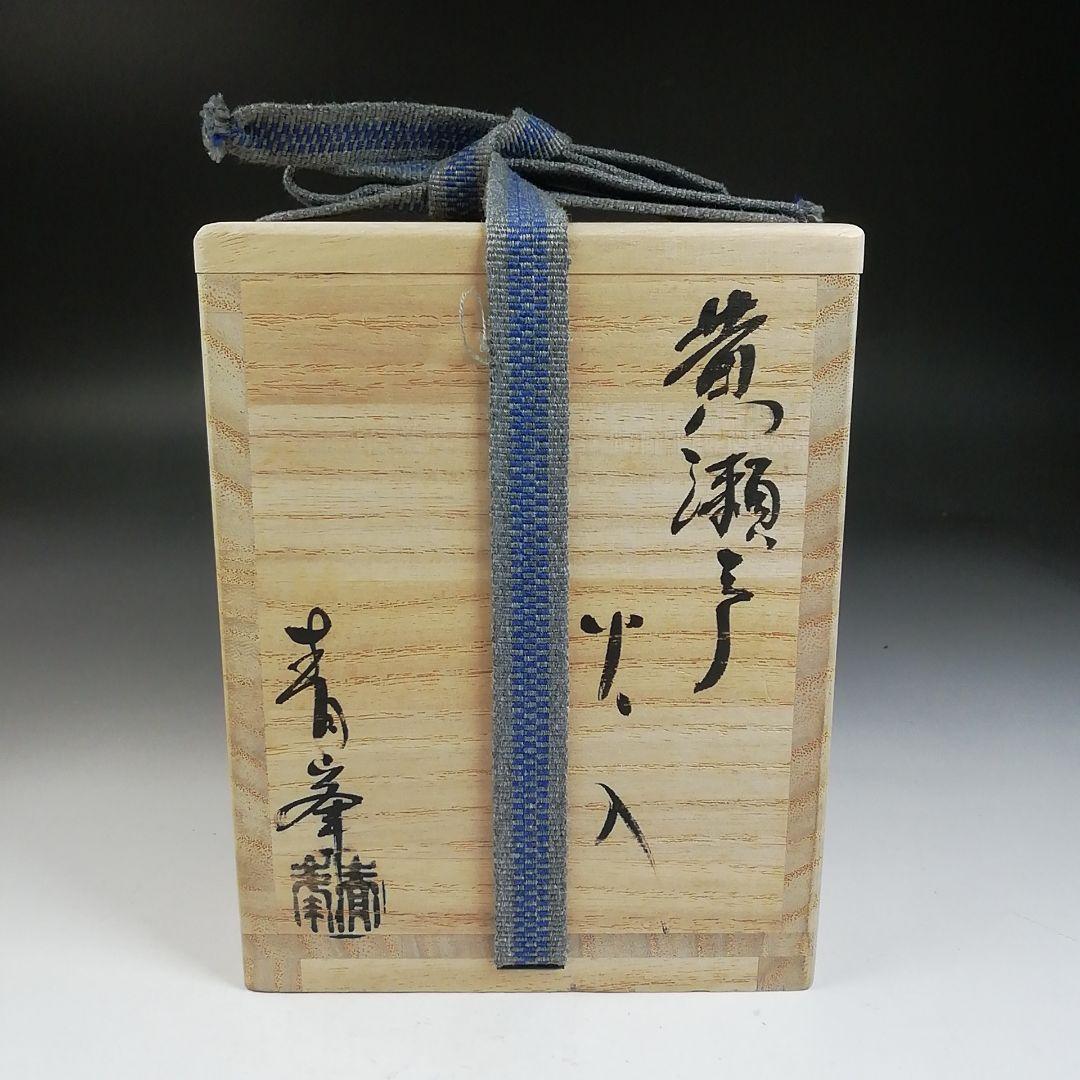 黄瀬戸
火入
青峯
青峯